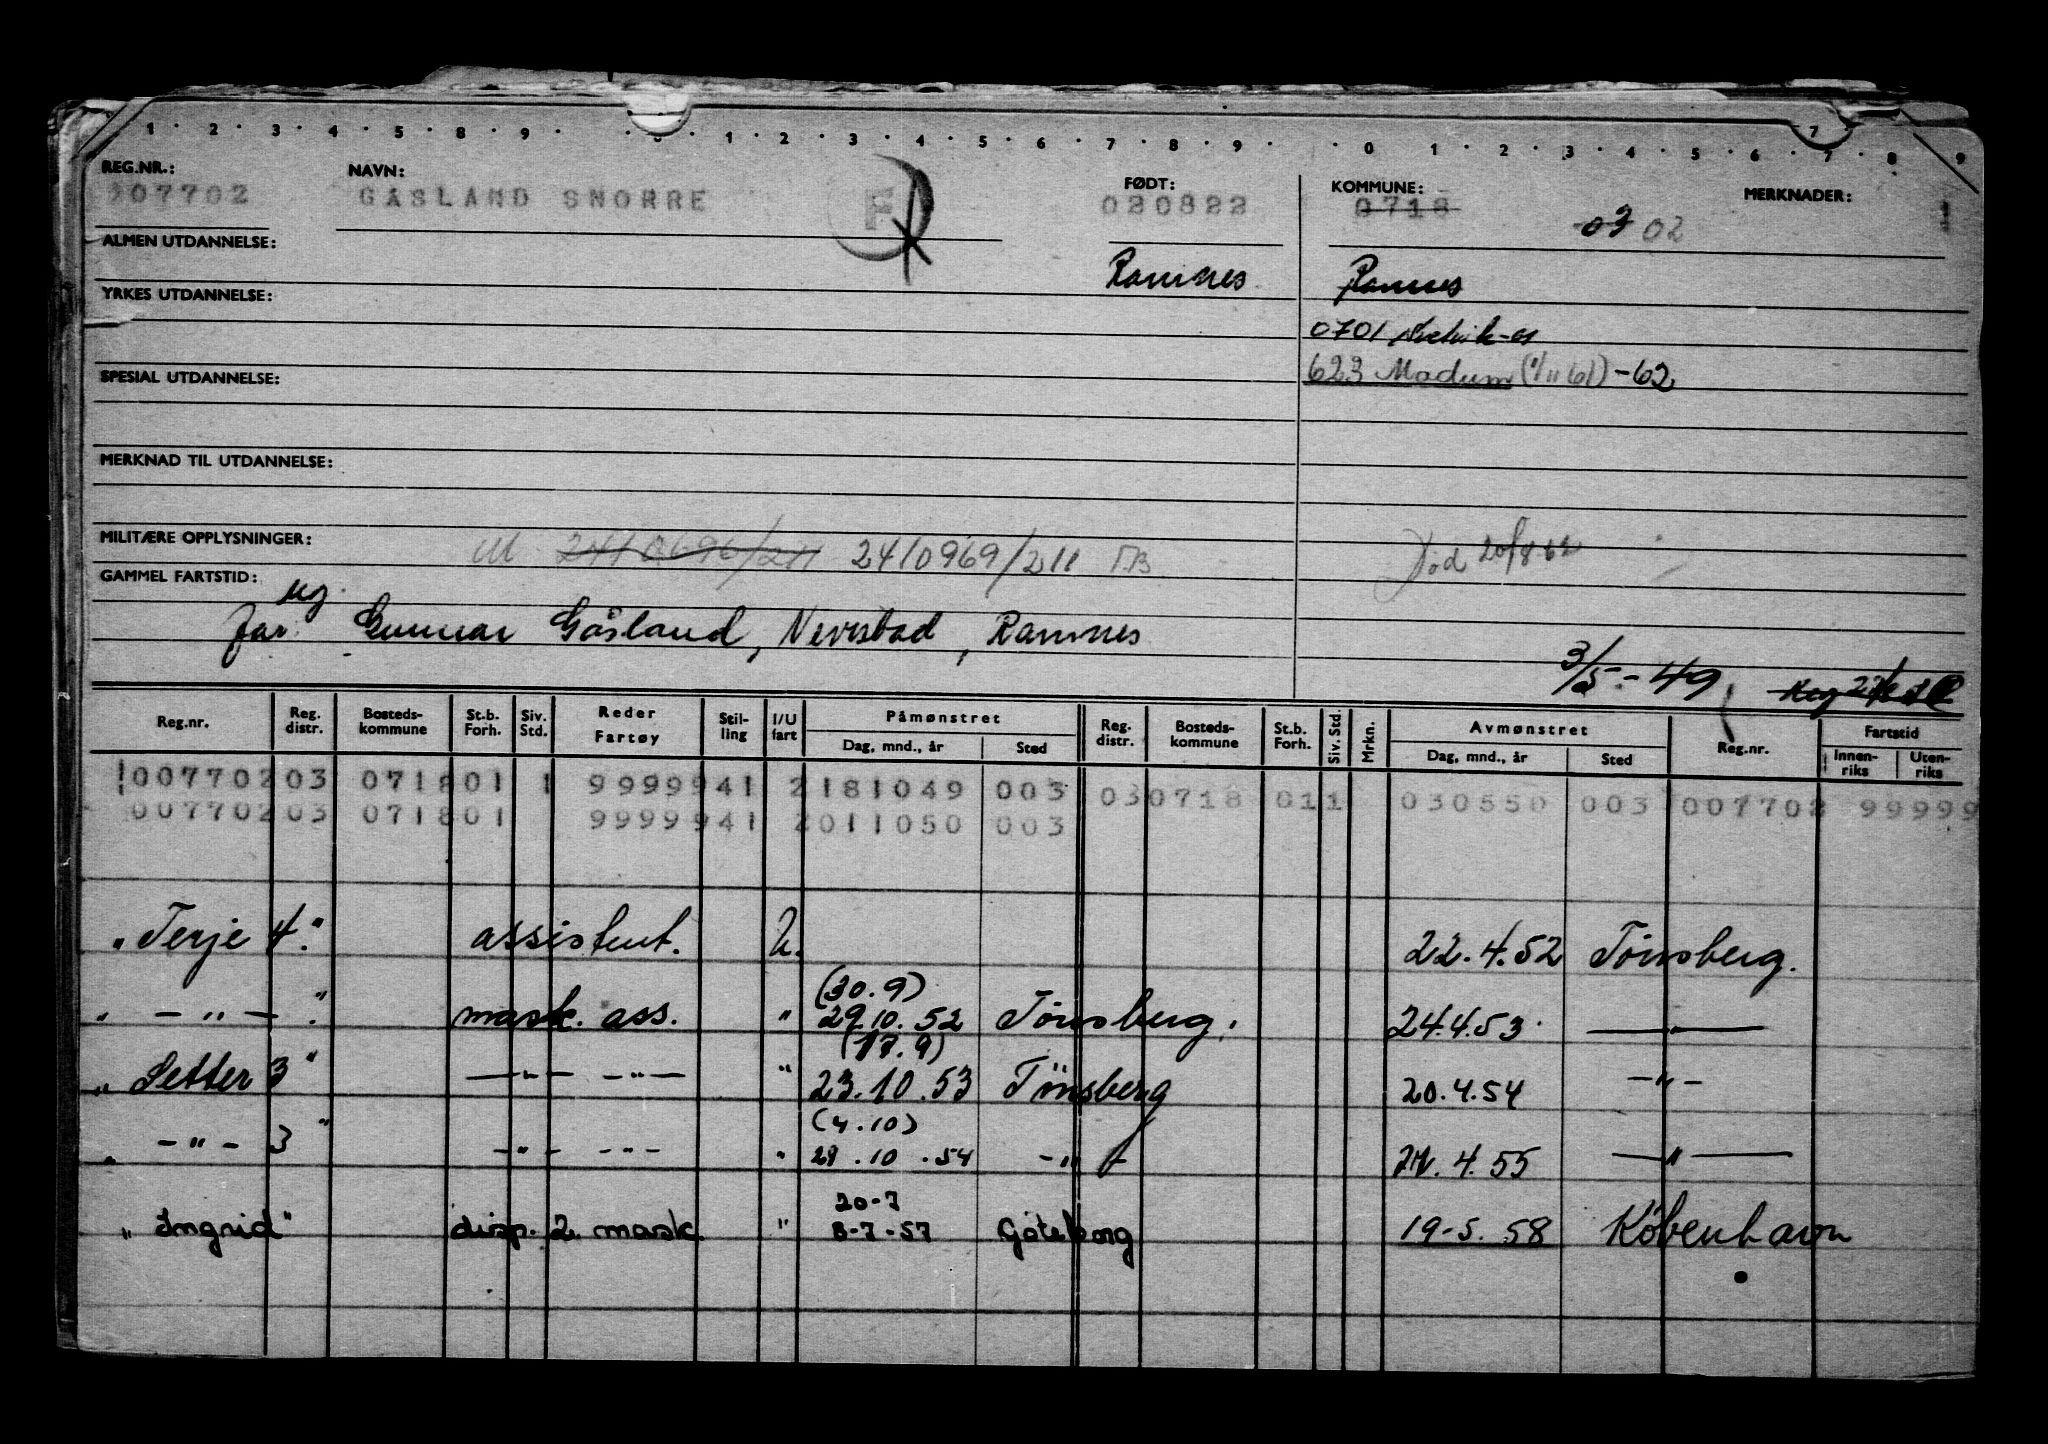 1 · 2 · 3 · 4 · 5 · 8 · 9 · · 0 · 1 · 2 · 3 · 4 · 5 · 6 · 7 · 8 · 9 · · 0 · 1 · 2 · 3 · 4 · 5 · 6 · 7 · 8 · 9
7
REG.NR.: NAVN: FØDT: KOMMUNE: MERKNADER:
007702 GÅSLAND SNORRE F 020822 0718 1
03 02
ALMEN UTDANNELSE:
Ramnes Ramnes
YRKES UTDANNELSE:
0701
SPESIAL UTDANNELSE: 623 Modum (1/11 61) -62
MERKNAD TIL UTDANNELSE:
MILITÆRE OPPLYSNINGER: M 2410696/211 2410969/211 T.B Død 20/8 62
GAMMEL FARTSTID:
ug.
far: Gunnar Gåsland, Nevestad, Ramnes
3/5 - 49
Reg.nr. Reg. distr. Bosteds-kommune St.b. Forh. Siv. Std. Reder Fartøy Stil-ling I/U fart Påmønstret Dag, mnd., år Sted Reg. distr. Bosteds-kommune St.b. Forh. Siv. Std. Mrkn. Avmønstret Dag, mnd., år Sted Reg.nr. Fartstid Innen-riks Uten-riks
007702 03 0718 01 1 9999 941 2 181049 003 03 0718 01 1 030550 003 007702 99999
007702 03 0718 01 9999 941 2 011050 003
„Terje 4." assistent. U. 22.4.52 Tönsberg.
(30.9)
„ — " — ." mask. ass. " 29.10.52 Tönsberg. 24.4.53 — " —
(17.9)
„Setter 3" — " — — " — " 23.10.53 Tönsberg 20.4.54 — " —
(4.10)
„ — " — 3" — " — — " — " 29.10.54 — " — .4.55 — " —
20-7
„Ingrid" disp. 2. mask. " 8-7-57 Göteborg 19-5.58 København